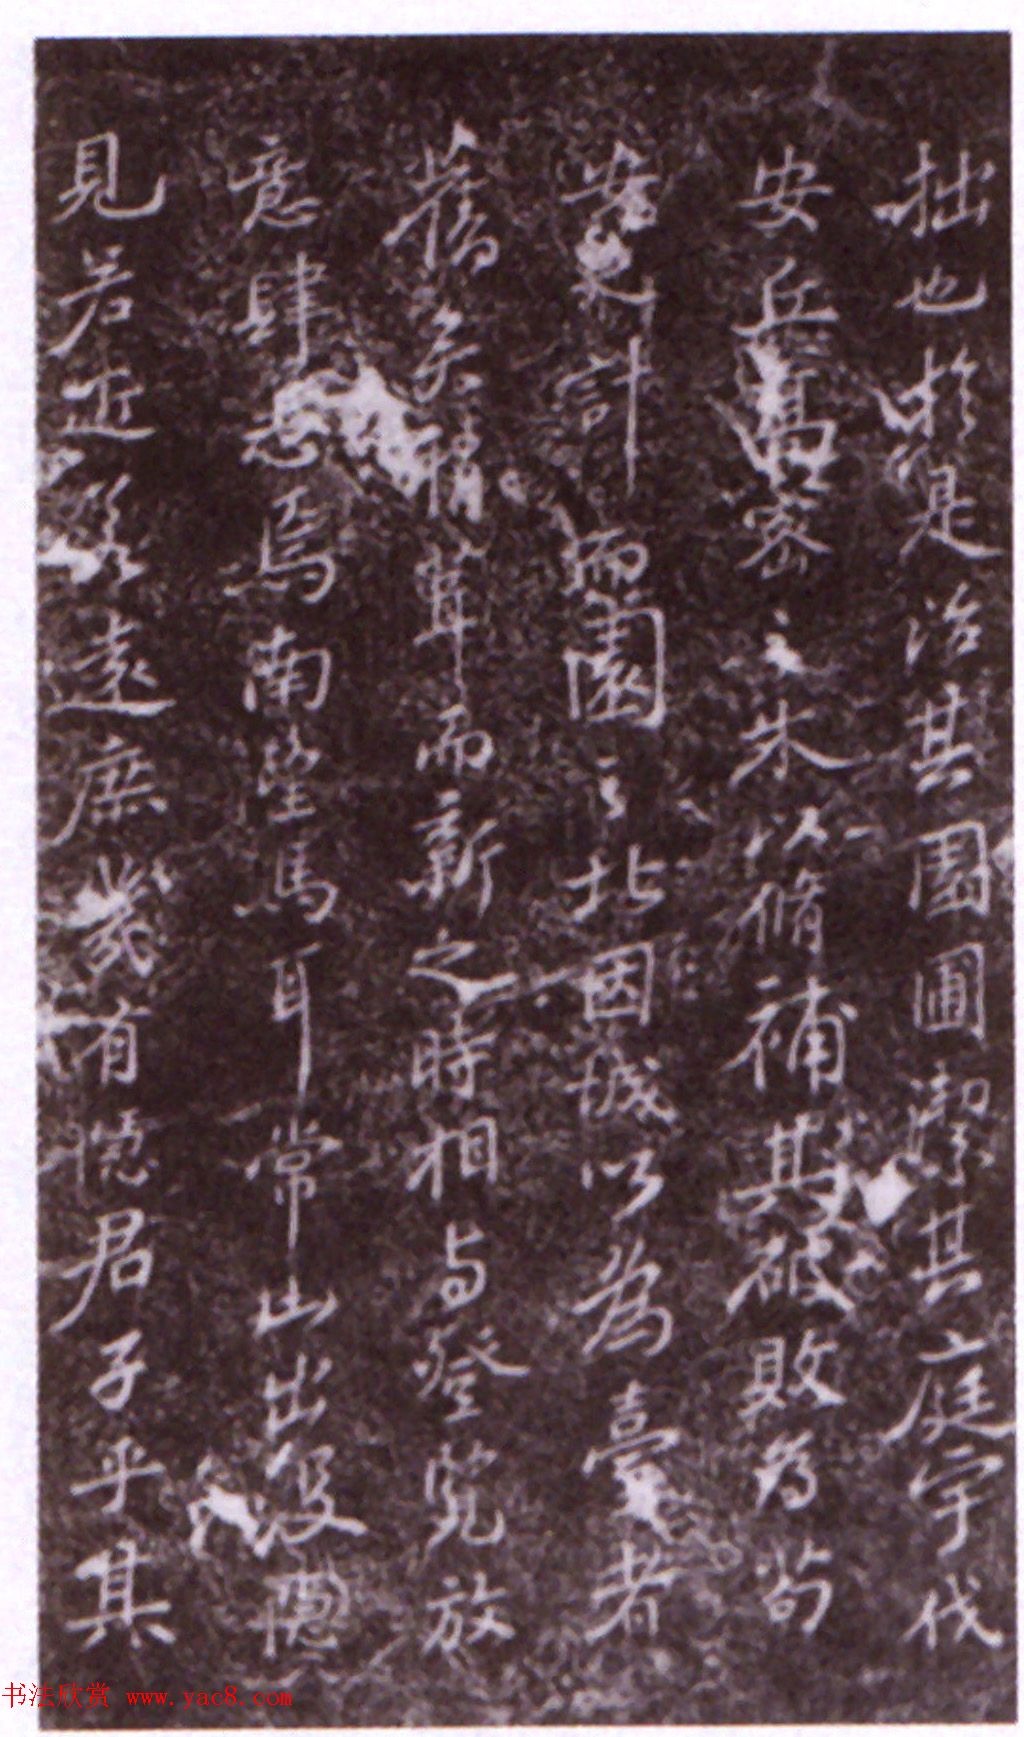 拙也於是治其園圃潔其庭宇伐
安丘高密之木以脩補其破敗為苟
安之計而園之北因城以為臺者
舊矣稍葺而新之時相與登覽放
意肆志焉南望馬耳常山出沒隱
見若近若遠庶幾有隱君子乎其
书法欣赏 www.yac8.com